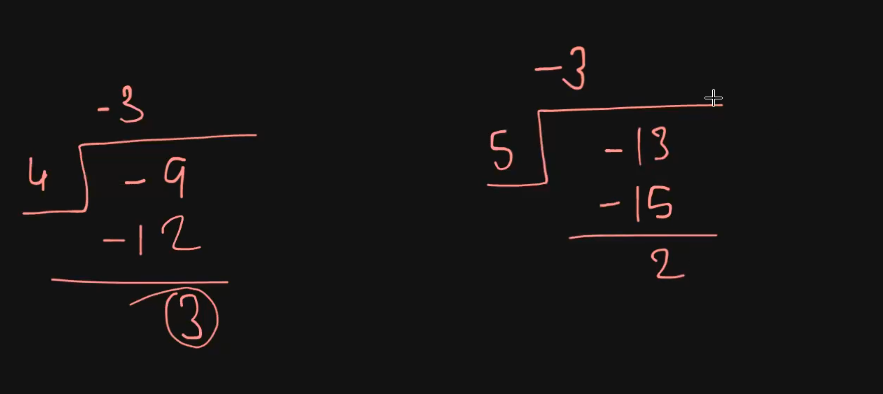 -3
4 -9
-12
3
-3
5 -13
-15
2